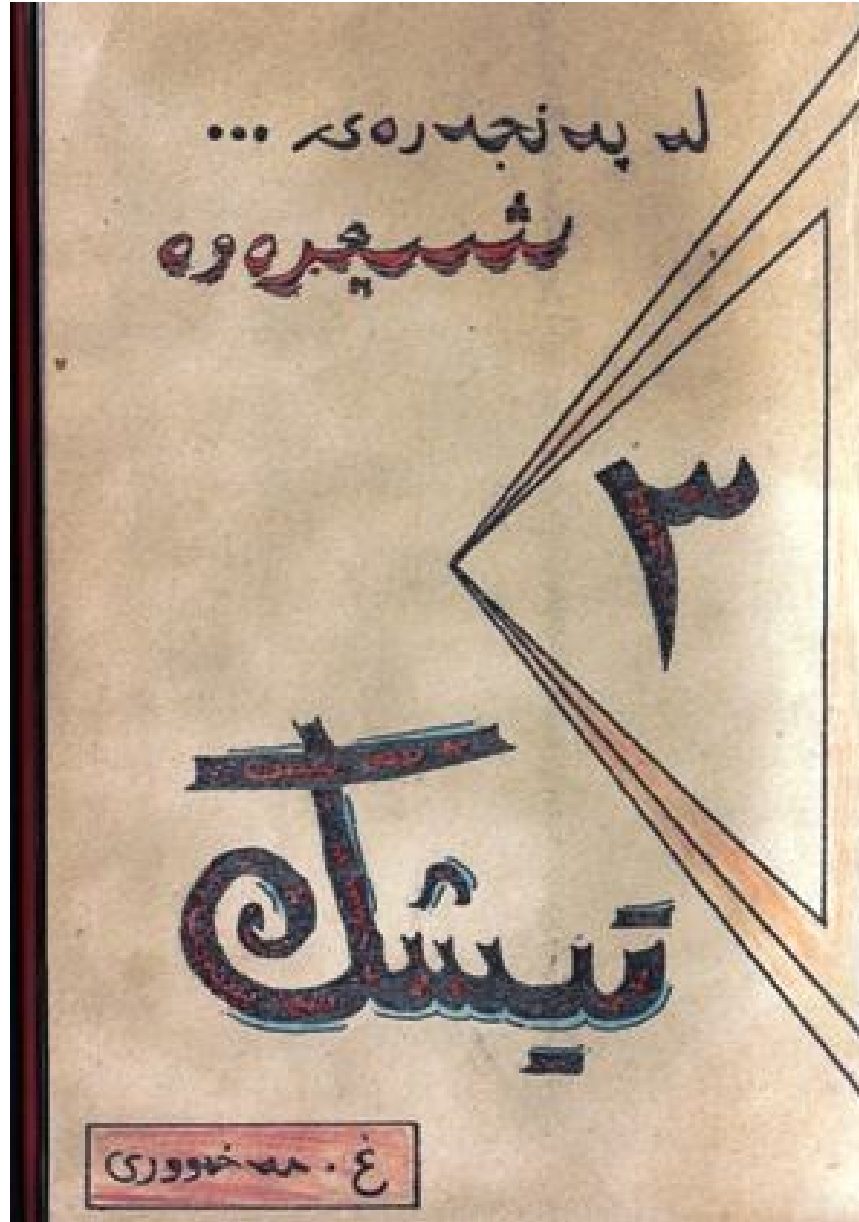 لە پەنجەرەی ...
شیعرەوە
٣
تیشک
غ . مەخمووری